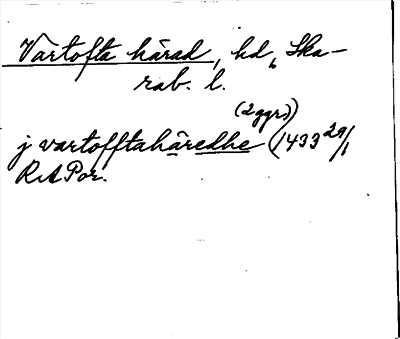 Vartofta härad, hd, Ska-
rab. l.
(2 ggr)
j vartofftahäredhe (1433 29/1
RA Por.